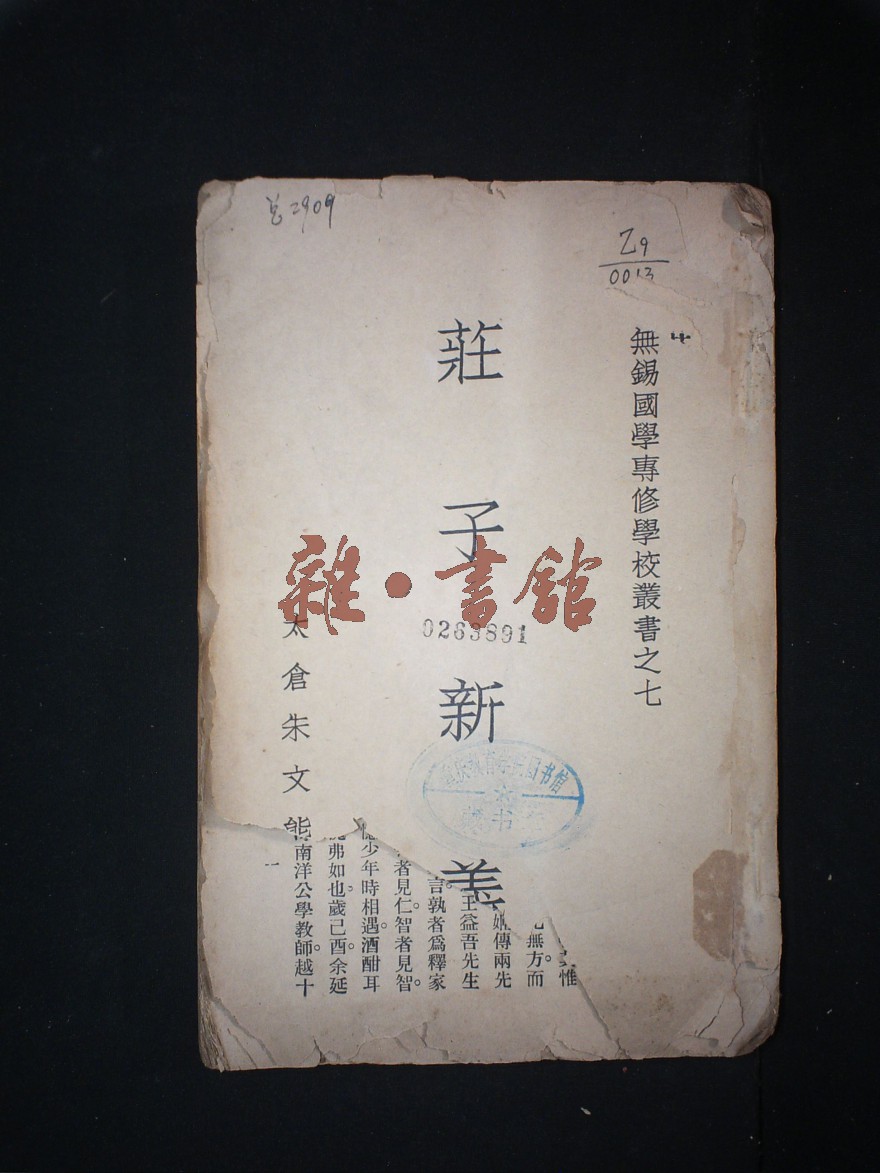 总2909
Z9
0013
無錫國學專修學校叢書之七
莊子新義
雜·書館
0263891
太倉朱文熊
惟
無方而
傳兩先
王益吾先生
言孰者爲釋家
者見仁智者見智。
少年時相遇。酒酣耳
弗如也。歲己酉余延
南洋公學教師。越十
一
书馆